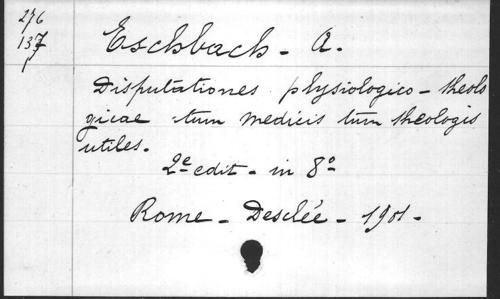 276
137
Eschbach - A.
Disputationes physiologico - theolo
gicae tum medicis tum theologis
utiles.
2e edit - in 8o
Rome - Desclée - 1901 -